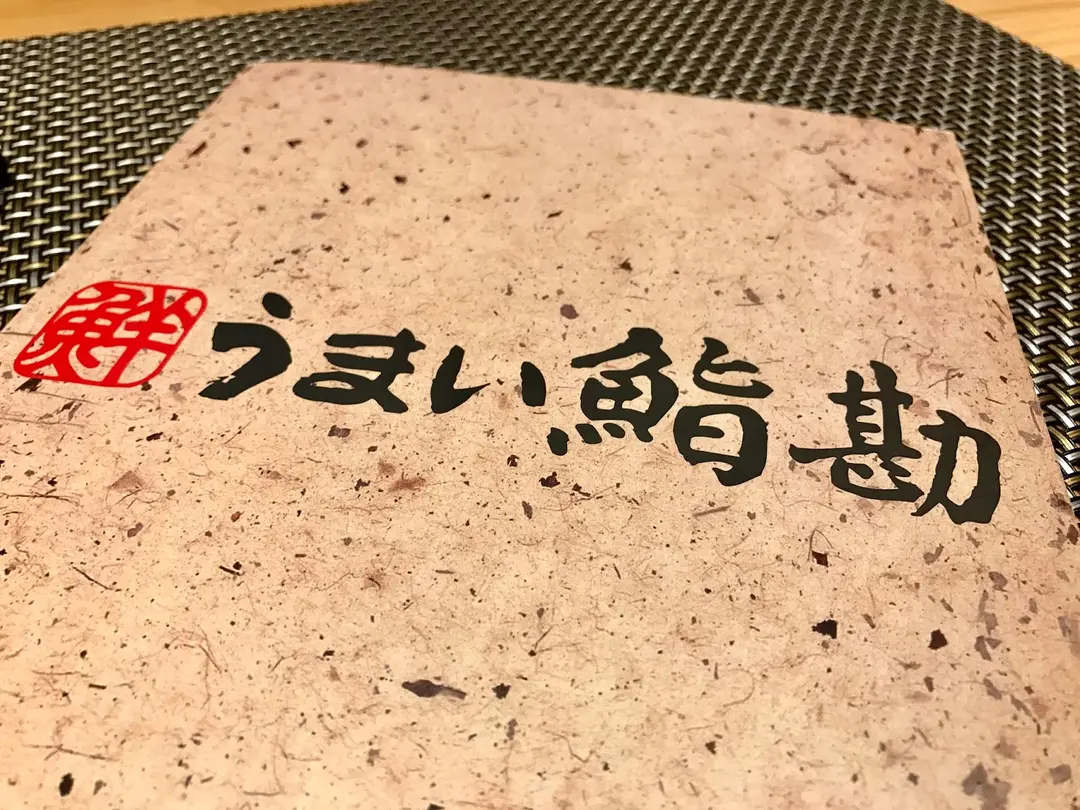 鮮 うまい鮨勘